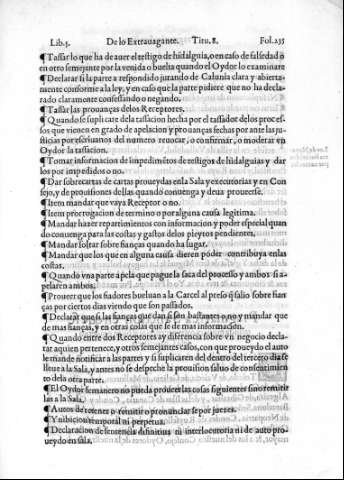 Lib.5. De lo Extrauagante. Titu.8. Fol.235
¶Tassar lo que ha de auer el testigo de hidalguia, o en caso de falsedad o
en otro semejante por la venida o buelta quando el Oydor lo examinare
¶Declarar si la parte a respondido jurando de Calunia clara y abierta-
mente conforme a la ley, y en caso que la parte pidiere que no ha decla-
rado claramente confessando o negando.
¶Tassar las prouanças delos Receptores.
¶Quando se suplicare dela tassacion hecha por el tassador delos proces-
sos que vienen en grado de apelacion y prouanças fechas por ante las ju-
sticias por escriuanos del numero reuocar, o confirmar, o moderar en
Oydor la tassacion.
¶Tomar informacion de impedimētos de testigos de hidalguias y dar
los por impedidos o no.
¶Dar sobrecartas de cartas proueydas en la Sala y executorias y en Con
sejo, y de prouisiones dellas quando conuenga y deua prouerse.
¶Item mandar que vaya Receptor o no.
¶Item prorrogacion de termino o por alguna causa legitima.
¶Mandar hazer repartimientos con informacion y poder especial quan
do conuenga para las costas y gastos delos pleytos pendientes.
¶Mandar soltar sobre fianças quando ha lugar.
¶Mandar que los que en alguna causa dieren poder contribuya en las
costas.
¶Quando vna parte apela que pague la saca del processo y ambos si a-
pelaren ambos.
¶Proueer que los fiadores bueluan a la Carcel al preso q̄ salio sobre fian
ças por ciertos dias viendo que son passados.
¶Declarar que si las fianças que dan son bastantes o no y mandar que
de mas fianças, y en otras cosas que se de mas informacion.
¶Quando entre dos Receptores ay diferencia sobre vn negocio decla-
rar a quien pertenece, y otros semejantes casos, con que proueydo el auto
le mande notificar a las partes y si suplicaren del dentro del tercero dia se
lleue a la Sala, y antes no se despeche la prouision saluo de consentimien
to dela otra parte.
¶El Oydor semanero no pueda proueer las cosas siguientes sino remitir
las a la Sala.
¶Autos de retener o remitir o pronunciarse por jueces.
¶Ynibicion temporal ni perpetua.
¶Declaracion de sentencia difinitiua ni interlocutoria ni de auto pro-
ueydo en sala.